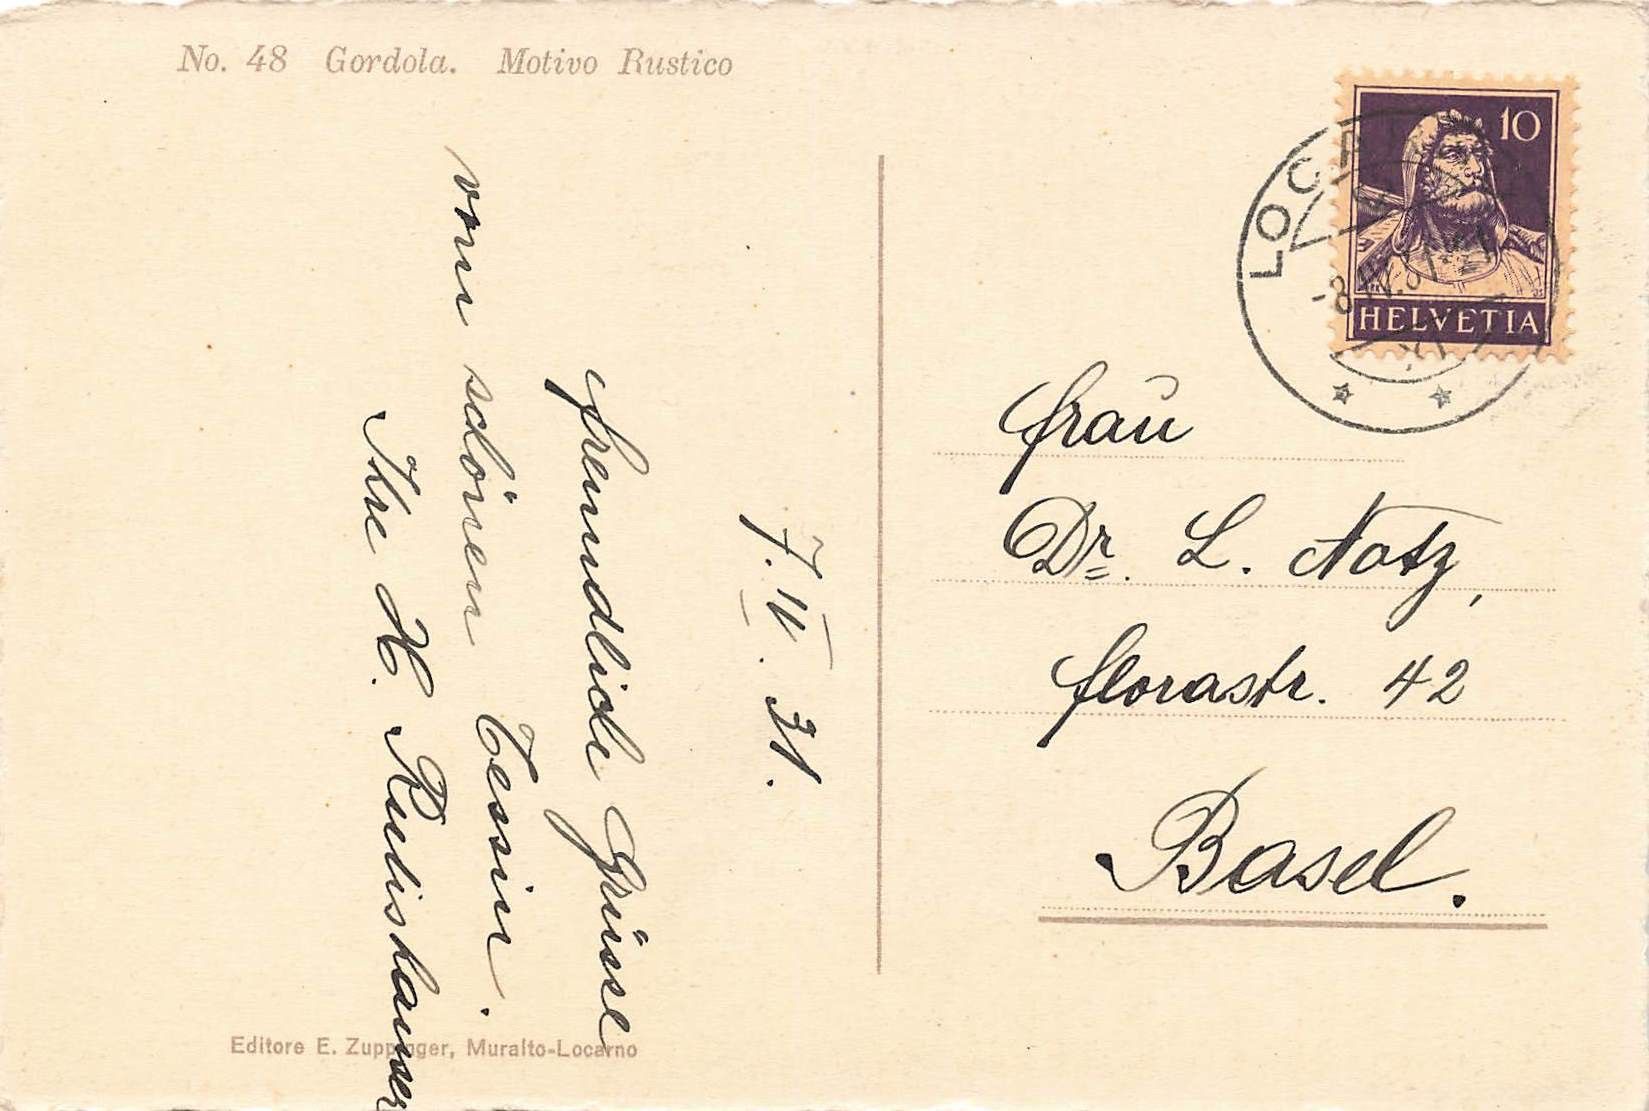 No. 48 Gordola. Motivo Rustico
7. IV. 31.
freundliche Grüsse
vom schönen Tessin.
Ihre H.
Editore E. Zuppinger, Muralto-Locarno
10
HELVETIA
LOCAR
-8.IV.31
Frau
Dr. L. Notz,
Florastr. 42
Basel.